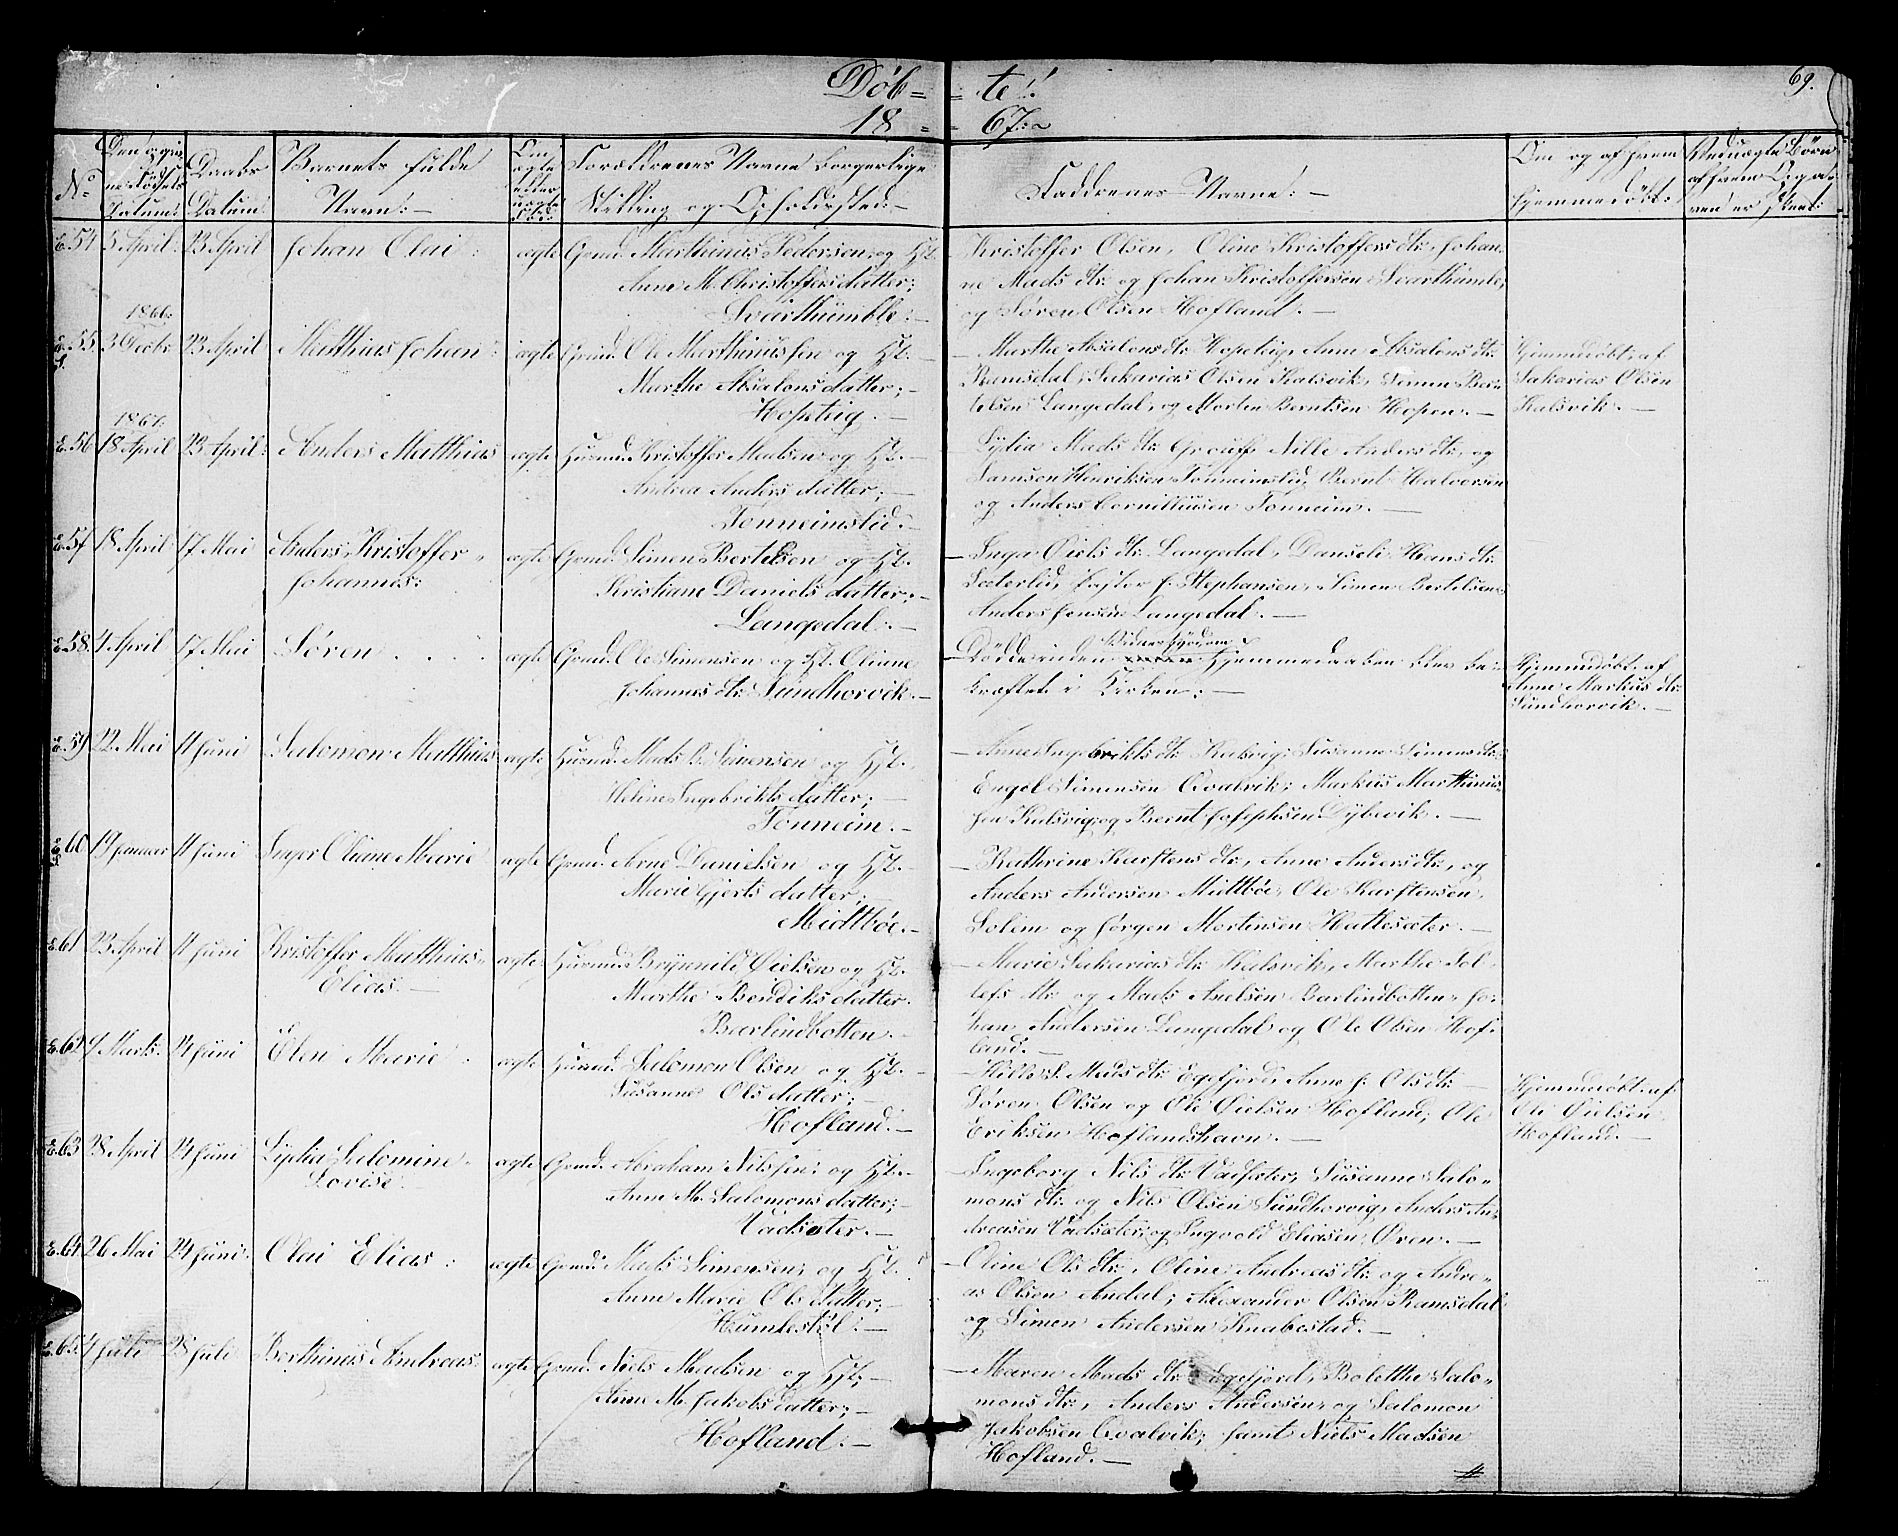 Døb= =te!
18= =67:~
69.
No
Datum:
Daabs
Datum
Barnets fulde
Navn: —
ægte
eller
Forældrenes Navne borgerlige
Stilling og Opholdssted: —
Faddrenes Navne: —
Om og af hvem
hjemmedøbt:
54 5 April 23 April Johan Olai: ægte Gmd. Marthinus Pedersen og H.
Anne M. Christoffersdatter;
Svarthumble: —
Kristoffer Olsen, Oline Kristoffers dtr. Johan-
ne Mads dtr. og Johan Kristoffersen Svarthumle,
og Søren Olsen Hofland. —
1866.
55 3 23 April Matthias Johan ægte Gmd. Ole Marthinussen og H. —
Marthe Absalonsdatter; —
Hopteig. —
Marthe Absalons dtr. Hopteig, Anne Absalons dtr.
Ramsdal, Sakarias Olsen Kalsvik, Simen Ber-
telsen Langedal, og Morten Berntsen Hopen. —
Hjemmedøbt af
Sakarias Olsen
Kalsvik. —
1867.
56 18 April 23 April: Anders Matthias ægte Husmd. Kristoffer Madsen og H. —
Andrea Anders datter; —
Tonneimslid. —
Lydia Mads dtr. Nille Anders dtr. og
Samson Henriksen Tonneimslid, Bernt Halvorsen
og Anders Cornilliusen Tonneim. —
57 18 April 17 Mai Anders Kristoffer
Johannes: ægte Gmd. Simen Bertelsen og H.
Kristiane Daniels datter; —
Langedal: —
Inga dtr. Langedal, Hans dtr.
Sæterlid, J. Stephansen, Simen Bertilsen
Anders Jensen Langedal. —
58. 4 April 17 Mai Søren . . . ægte Gmd. Ole Simensen og H. Oliane
Johannes dtr. Sundhorvik. —
Hjemmedaaben blev be=
kræftet i Kirken: —
Hjemmedøbt af
Anne Markus dtr.
Sundhorvik. —
59 22 Mai 11 Juni Salomon Matthias ægte Husmd. Mads B. Simensen og H.
Heline Ingebrikts datter; —
Tonneim. —
Anne Ingebrikts dtr. Kalsvig, Susanne Simens dtr.
Engel Simensen Qvalvik; Markus Marthinus-
sen Kalsvig, og Bernt Josephsen Dybevik. —
60 19 Januar 11 Juni Inger Oliane Marie ægte Gmd. Arne Danielsen og H. —
Marie Gjerts datter; —
Midtbøe. —
Kathrine Karstens dtr., Anne Anders dtr., og
Anders Andersen Midtbøe, Ole Karstensen,
Solem og Jørgen Mortinsen Hattesæter. —
61 23 April 11 Juni Kristoffer Matthias
Elias. — ægte Husmd. Brynnild Øielsen og H.
Marthe Bendiks datter.
Barlindbotten. —
Marie Sakarias dtr. Kalsvik, Marthe Tol-
lefs dtr. og Mads Axelsen Barlindbotten, Jo-
han Andersen Langedal og Ole Olsen Hof-
land. —
62 7 Marts. 24 Juni Elen Marie: ægte Husmd. Salomon Olsen og H. —
Susanne Ols datter; —
Hofland. —
Mads dtr. Egefjord, Anne J. Ols dtr. —
Søren Olsen og Ole Øielsen Hofland; Ole
Eriksen Hoflandshavn. —
Hjemmedøbt af
Ole Øielsen
Hofland. —
63 28 April 24 Juni Lydia Salomine
Lovise. ægte Gmd. Abraham Nilssen og H. —
Anne M. Salomons datter; —
Vadsæter. —
Ingeborg Nils dtr. Vadsæter, Susanne Salo-
mons dtr. og Nils Olsen Sundhorvig, Anders An-
dreasen Vadsæter, og Ingvold Eliasen Øren. —
64 26 Mai 24 Juni Olai Elias: ægte Gmd. Mads Simensen og H.
Anne Marie Ols datter; —
Humlestøl: —
Oline Ols dtr., Oline Andreas dtr. og Andre-
as Olsen Aadal; Alexander Olsen Ramsdal
og Simon Andersen Knabestad. —
65. 4 Juli 28 Juli Berthinus Andreas: ægte Gmd. Niels Madsen og H. —
Anne M. Jakobs datter; —
Hofland. —
Maren Mads dtr. Egefjord, Bolethe Salo-
mons dtr., Anders Andersen, og Salomon
Jakobsen Qvalvik; samt Niels Madsen
Hofland. —